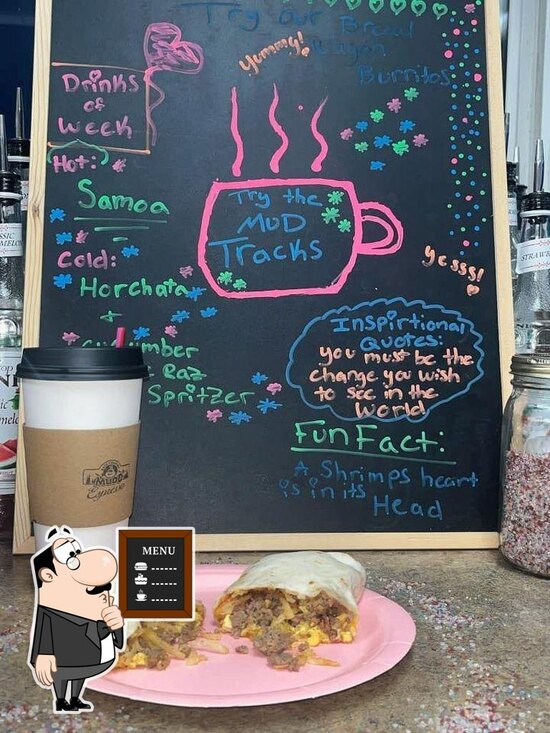 Try our Bread
Wagon
Burritos
Yummy!
Drinks
of
week
Hot:
Samoa
Cold:
Horchata
+
Cucumber
Raz
Spritzer
Try the
MUD
Tracks
yesss!
Inspirtional
Quotes:
you must be the
change you wish
to see in the
World
Fun Fact:
A Shrimps heart
is in its
Head
MUDD
Espresso
MENU
STRAW